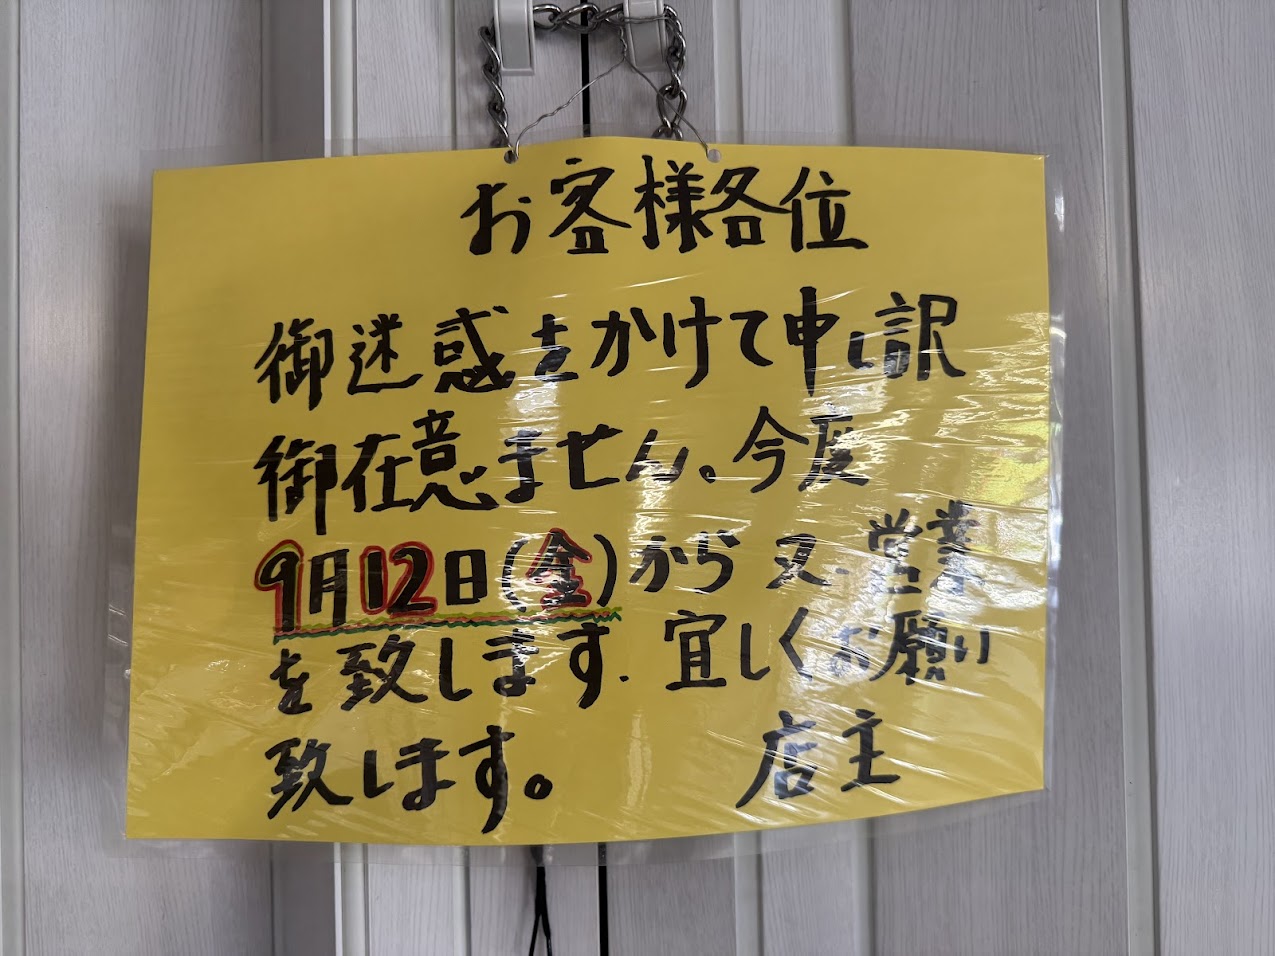 お客様各位
御迷惑をかけて申し訳
御在意ません。今度
9月12日(金)から又、営業
を致します. 宜しくお願い
致します。 店主